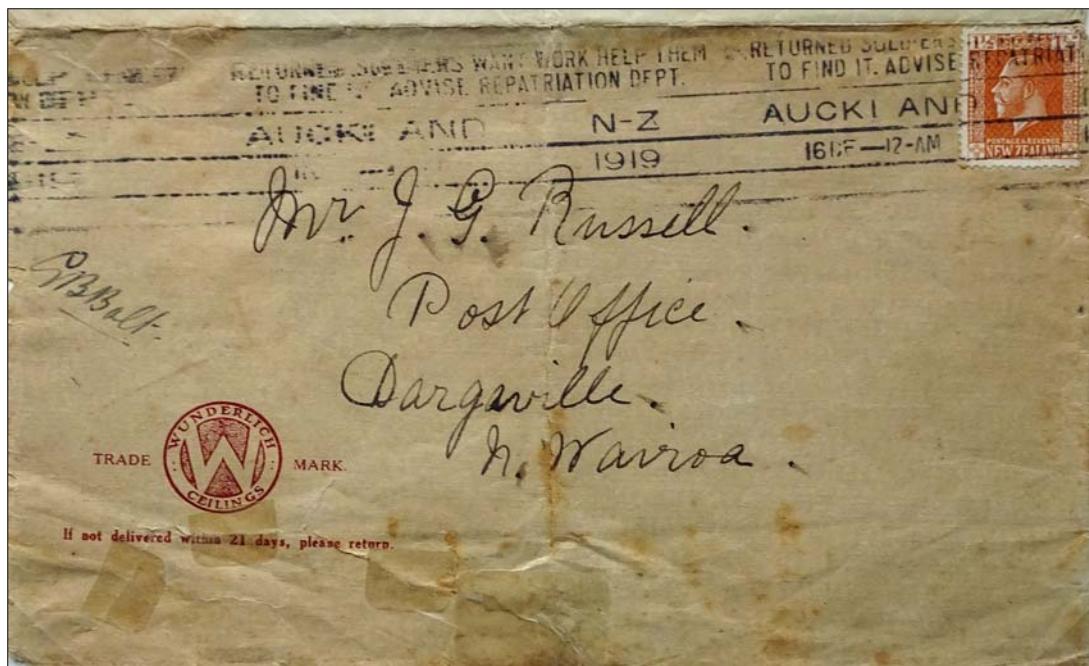 RETURNED SOLDIERS WANT WORK HELP THEM
TO FIND IT. ADVISE REPATRIATION DEPT.
RETURNED SOLDIERS
TO FIND IT. ADVISE REPATRIAT
AUCKLAND N-Z
1919
AUCKLAND
16 DE—12-AM
1½
POSTAGE & REVENUE
NEW ZEALAND
Mr. J. G. Russell.
Post Office.
Dargaville.
N. Wairoa.
GBBolt.
WUNDERLICH
W
CEILINGS
TRADE MARK.
If not delivered within 21 days, please return.